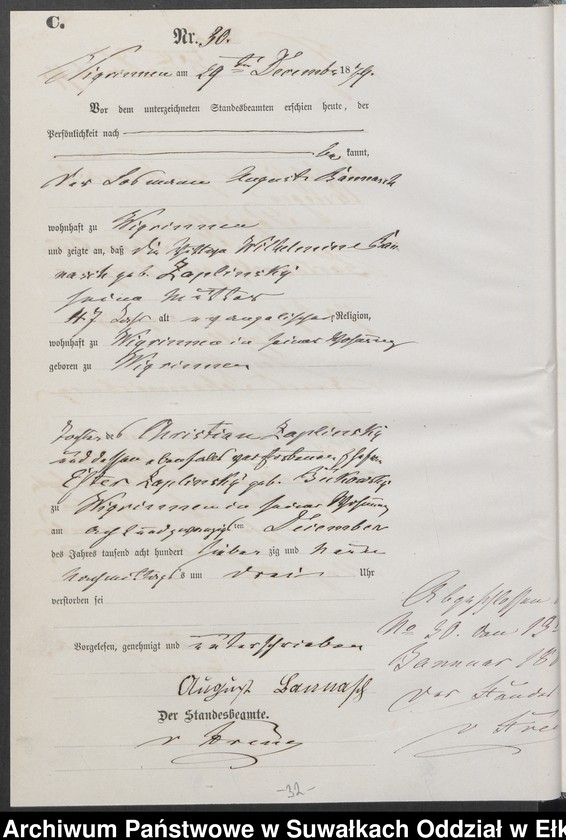 C.
Nr. 30.
Wigrinnen am 29ten December 1879.
Vor dem unterzeichneten Standesbeamten erschien heute, der
Persönlichkeit nach
be kannt,
der Losmann August Bannasch
wohnhaft zu Wigrinnen
und zeigte an, daß die Wittwe Wilhelmine Ban
nasch geb. Zaplinsky
seine Mutter
47 Jahr alt evangelischer Religion,
wohnhaft zu Wigrinnen in seiner Wohnung
geboren zu Wigrinnen
Tochter des Christian Zaplinsky
und dessen ebenfalls verstorbenen Ehefrau
Ester Zaplinsky geb.
zu Wigrinnen in seiner Wohnung
am acht und zwanzigsten December
des Jahres tausend acht hundert sieben zig und neun
Nachmittags um drei Uhr
verstorben sei
Vorgelesen, genehmigt und unterschrieben
August Bannasch
Der Standesbeamte.
Abgeschlossen
No 30. den
Januar
der Standes
-32-
Archiwum Państwowe w Suwałkach Oddział w Ełk